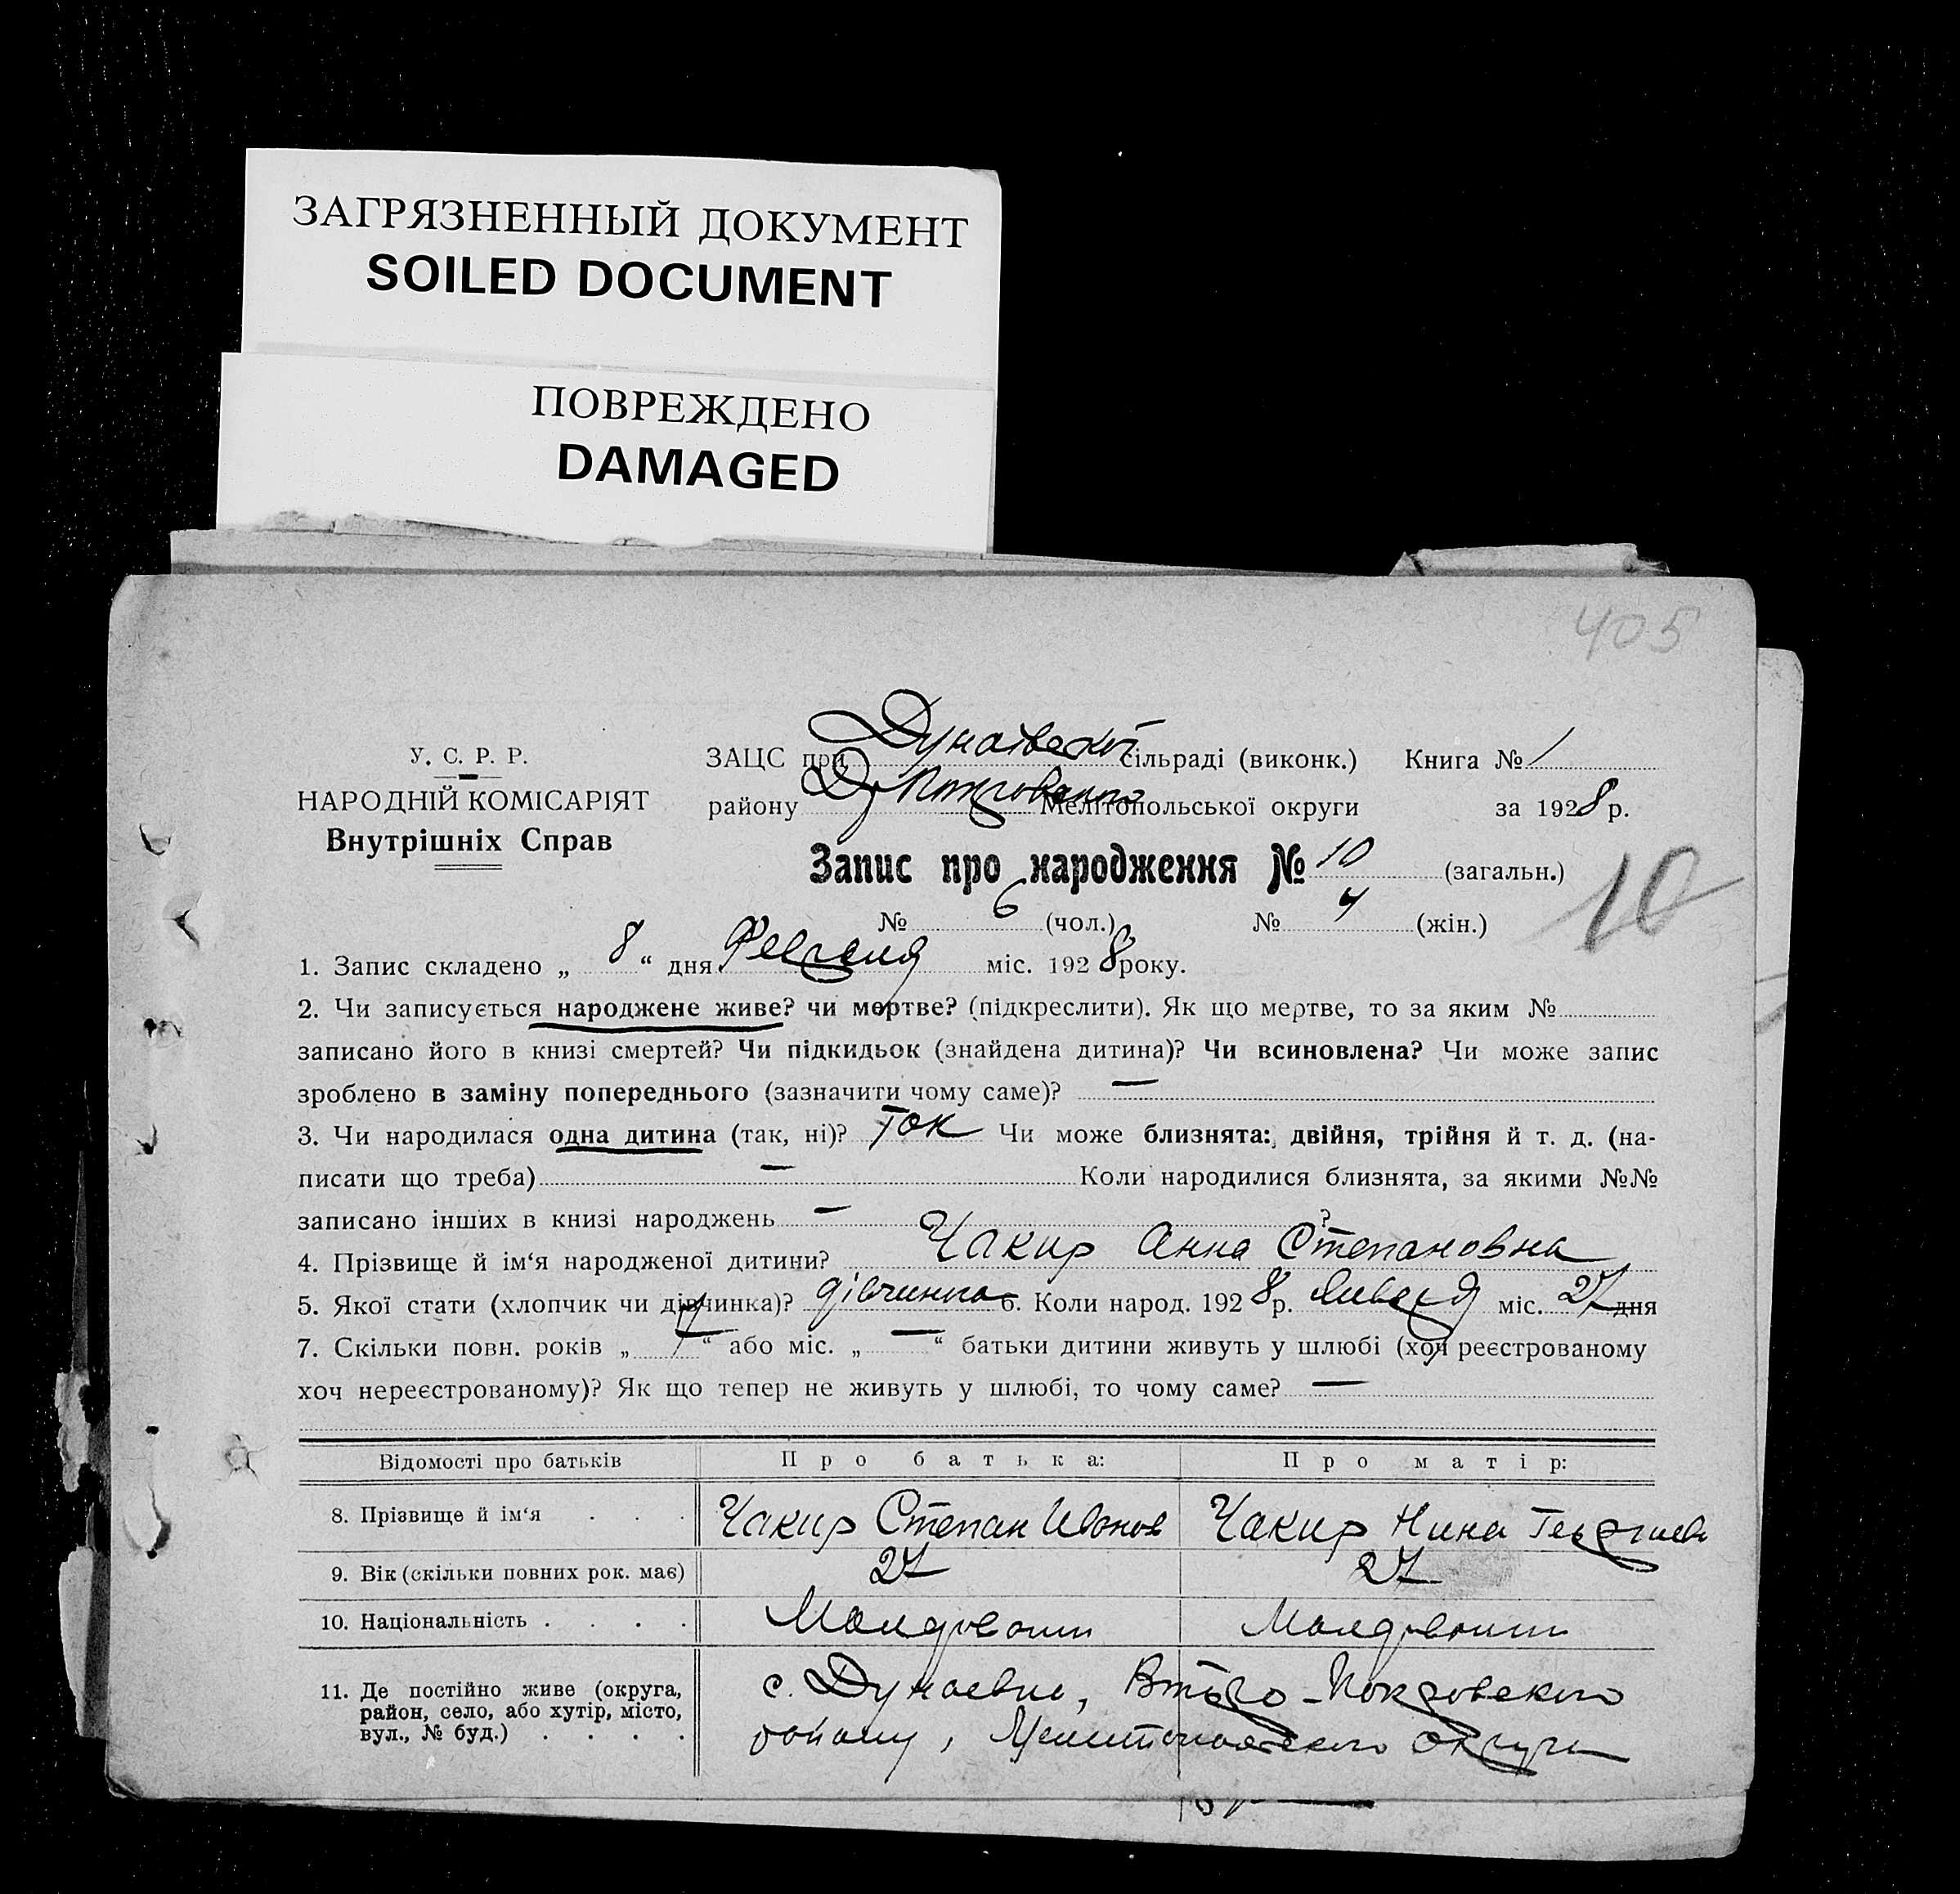 ЗАГРЯЗНЕННЫЙ ДОКУМЕНТ
SOILED DOCUMENT
ПОВРЕЖДЕНО
DAMAGED
405
У. С. Р. Р.
НАРОДНІЙ КОМІСАРІЯТ
Внутрішніх Справ
ЗАЦС при Дунаївській сільраді (виконк.) Книга № 1
району Мелітопольської округи за 1928 р.
Запис про народження № 10 (загальн.)
10
№ 6 (чол.) № 4 (жін.)
1. Запис складено „ 8 “ дня Февраля міс. 1928 року.
2. Чи записується народжене живе? чи мертве? (підкреслити). Як що мертве, то за яким №
записано його в книзі смертей? Чи підкидьок (знайдена дитина)? Чи всиновлена? Чи може запис
зроблено в заміну попереднього (зазначити чому саме)? —
3. Чи народилася одна дитина (так, ні)? так Чи може близнята: двійня, трійня й т. д. (на-
писати що треба) — Коли народилися близнята, за якими №№
записано інших в книзі народжень — ?
4. Прізвище й ім‘я народженої дитини? Чакир Анна Степановна
5. Якої стати (хлопчик чи дівчинка)? дівчинка 6. Коли народ. 1928 р. Января міс. 27 дня
7. Скільки повн. років „ 7 “ або міс. „ — “ батьки дитини живуть у шлюбі (хоч реєстрованому
хоч нереєстрованому)? Як що тепер не живуть у шлюбі, то чому саме? —
Відомості про батьків Про батька: Про матір:
8. Прізвище й ім‘я . . . Чакир Степан Иванов Чакир Нина Георгиев
9. Вік (скільки повних рок. має) 27 27
10. Національність . . . .
11. Де постійно живе (округа,
район, село, або хутір, місто,
вул., № буд.) . . . .
с. Дунаевка, Второ-Покровского
району, Мелитопольского округи